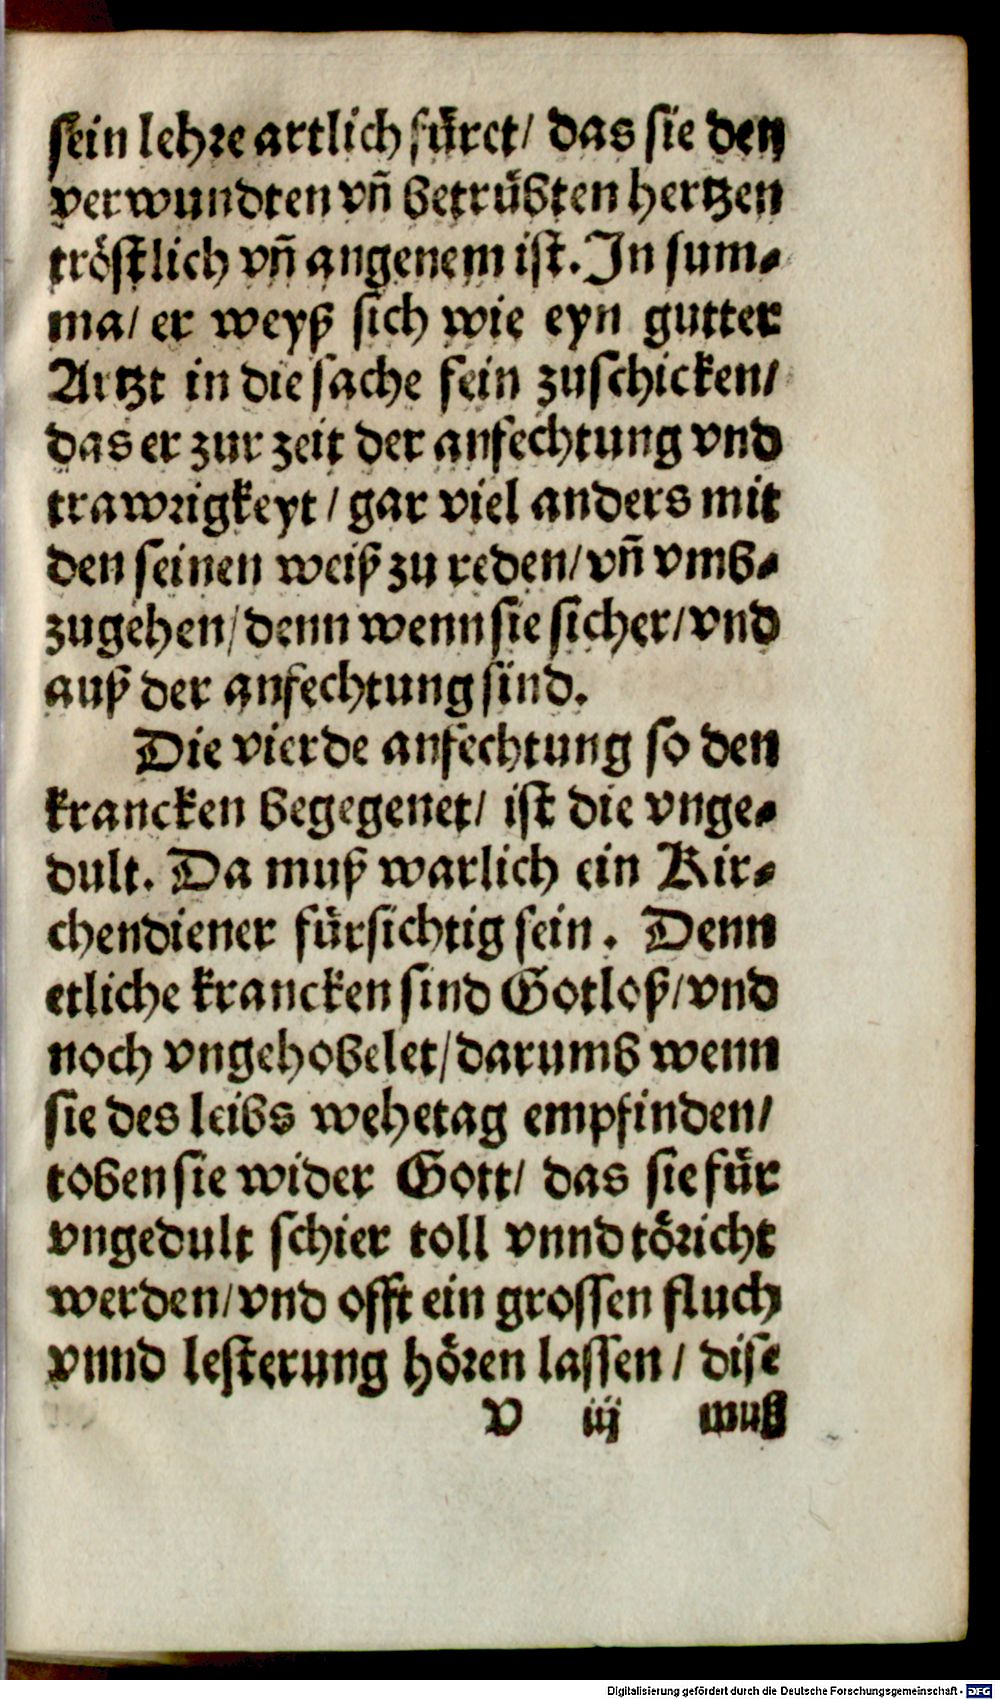 sein lehre artlich fürct/ das sie den
verwundten vñ betrübten hertzen
tröstlich vñ angenem ist. In sum⸗
ma/ er weyß sich wie eyn gutter
Artzt in die sache fein zuschicken/
das er zur zeit der anfechtung vnd
trawrigkeyt/ gar viel anders mit
den seinen weiß zu reden/ vñ vmb⸗
zugehen/ denn wenn sie sicher/ vnd
auß der anfechtung sind.
Die vierde anfechtung so den
krancken begegenet/ ist die vnge⸗
dult. Da muß warlich ein Kir⸗
chendiener fürsichtig sein. Denn
etliche krancken sind Gotloß/ vnd
noch vngehobelet/ darumb wenn
sie des leibs wehetag empfinden/
toben sie wider Gott/ das sie für
vngedult schier toll vnnd töricht
werden/ vnd offt ein grossen fluch
vnnd lesterung hören lassen/ dise
v iij muß
Digitalisierung gefördert durch die Deutsche Forschungsgemeinschaft - DFG